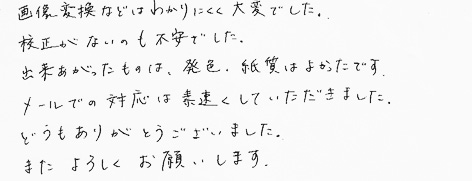 画像変換などはわかりにくく大変でした.
校正がないのも不安でした.
出来あがったものは、発色、紙質はよかったです.
メールでの対応は素速くしていただきました.
どうもありがとうございました.
また よろしく お願いします.